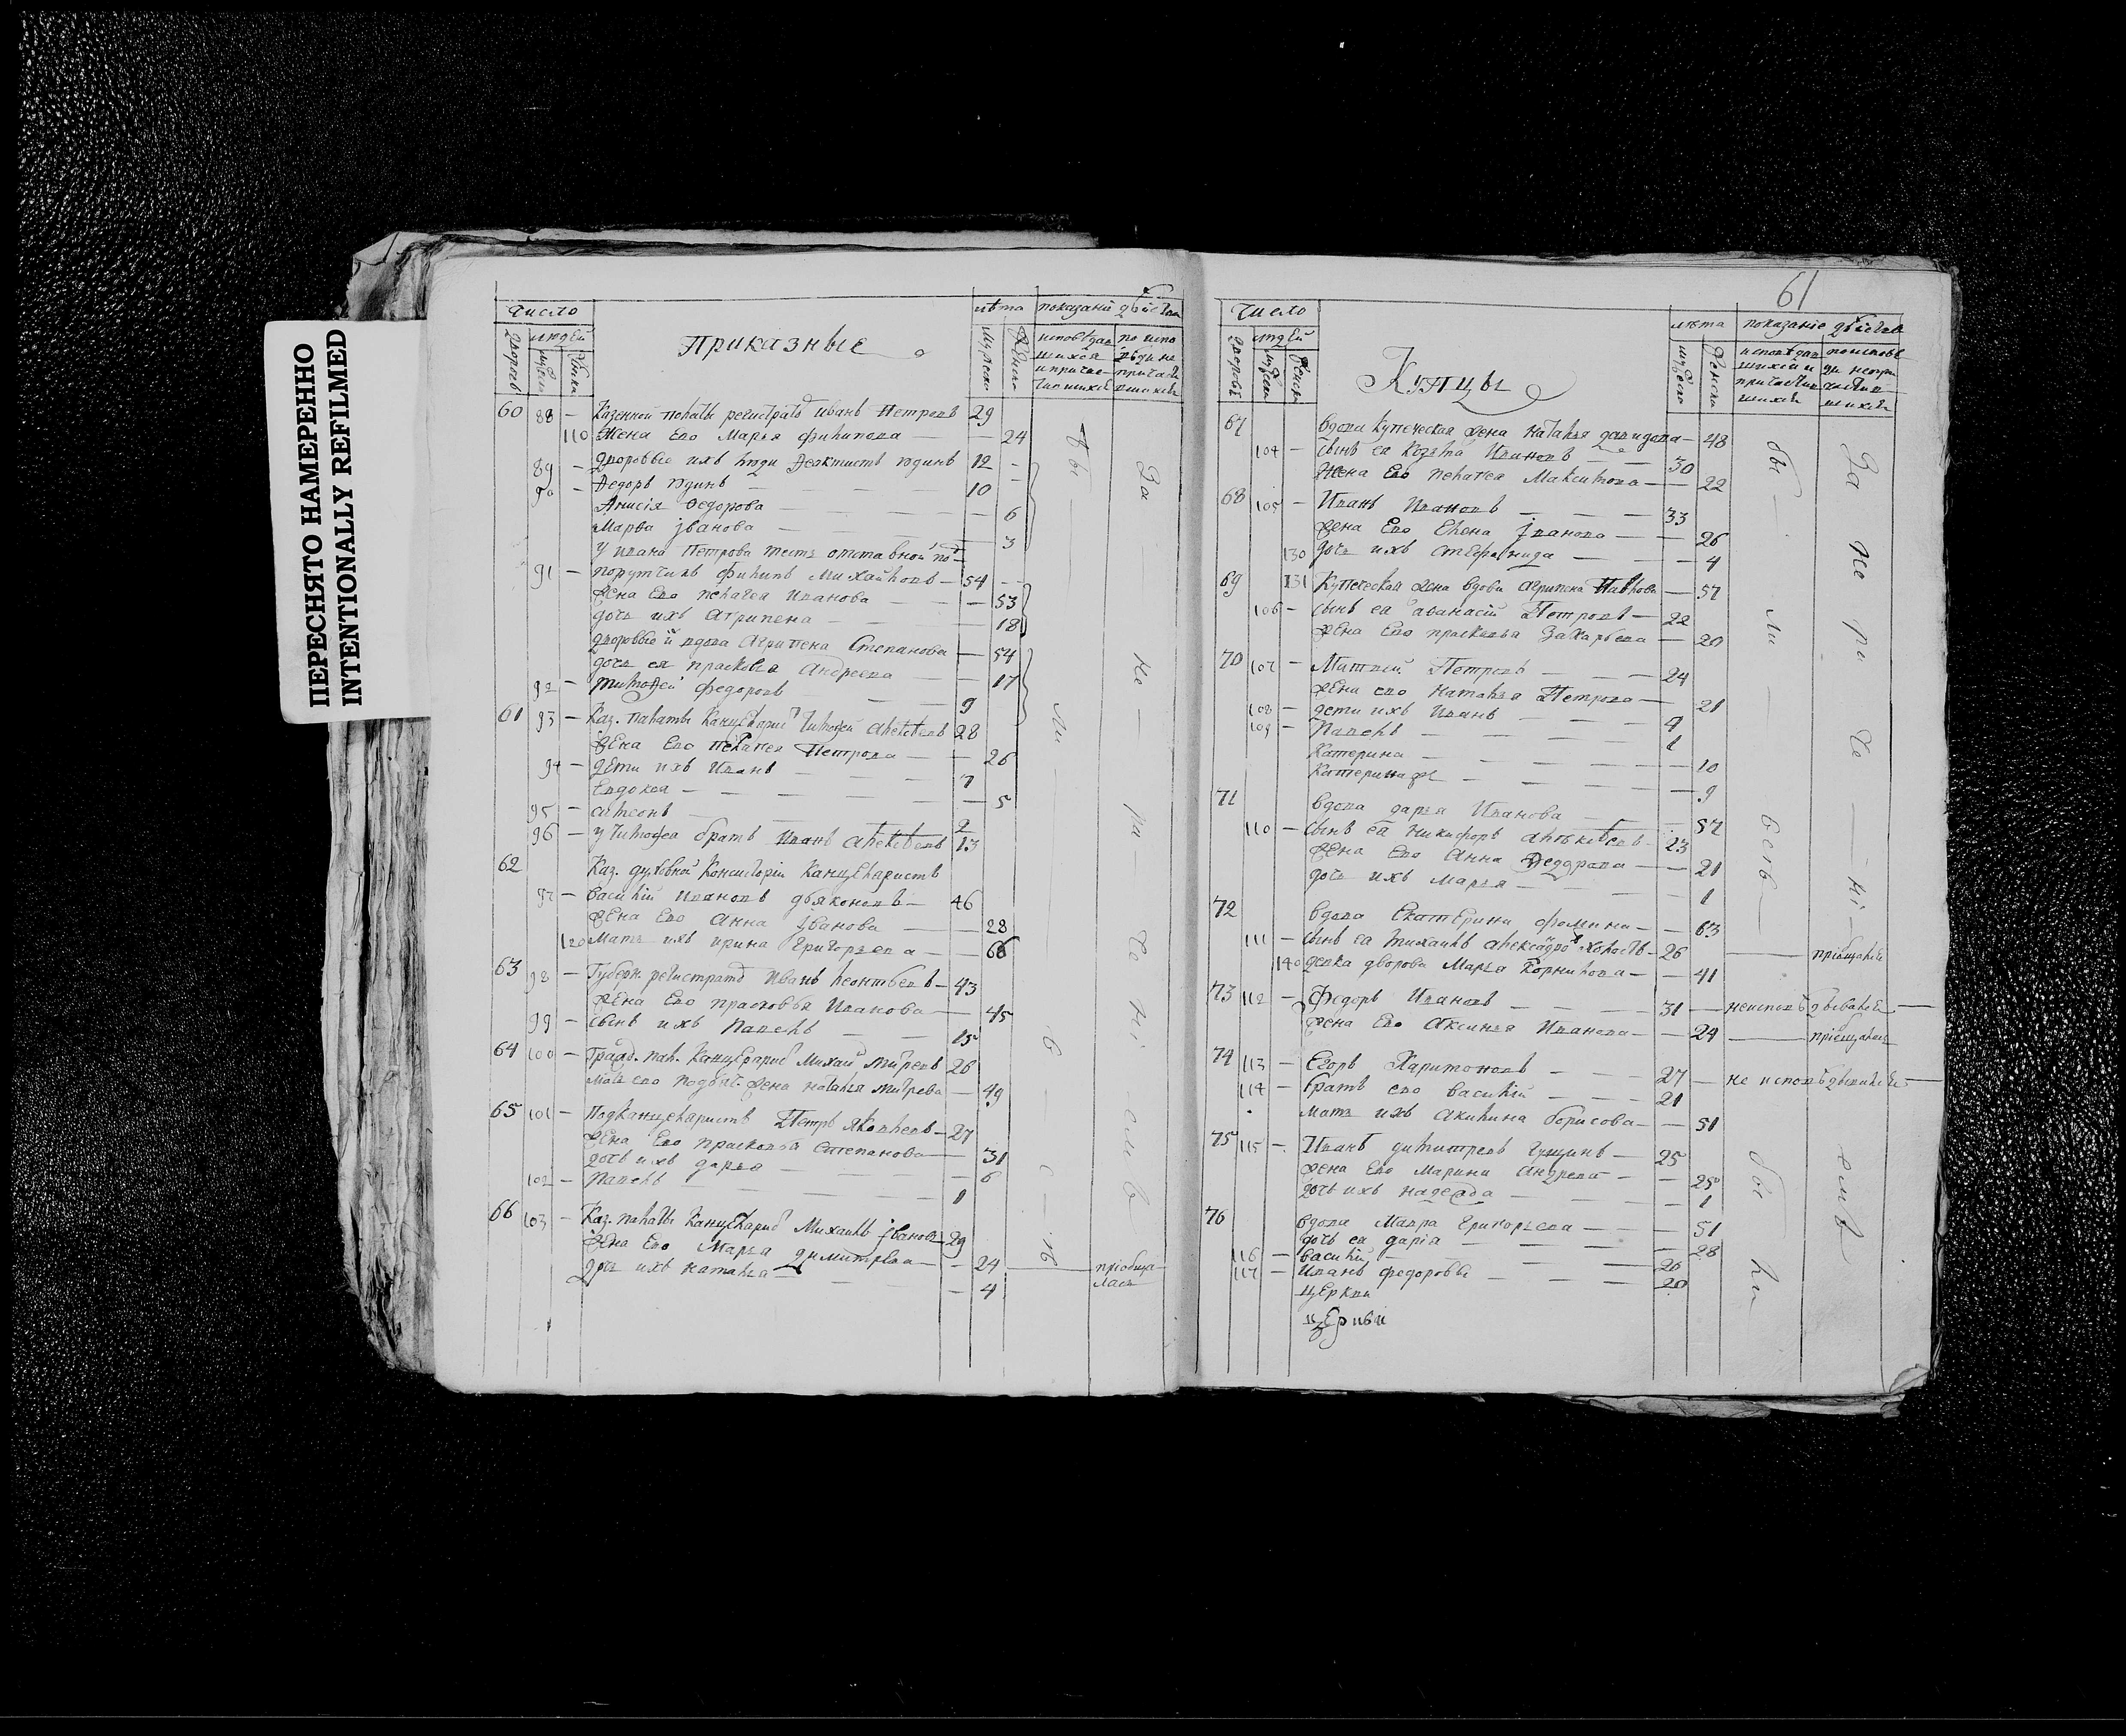 ПЕРЕСНЯТО НАМЕРЕННО
INTENTIONALLY REFILMED
число
людей
Приказные
лѣта
показаніе действа
60 88 — Казенной палаты регистрато иванъ Петровъ 29
110 Жена Ево Марья филипова — 24
89 — дворовые ихъ люди Феоктистъ юдинъ 12
90 — Федоръ юдинъ 10
Анисія Федорова 6
Марѳа іванова 3
У ивана Петрова тесть отставной
91 — порутчикъ Филипъ Михайловъ 54
жена Ево пелагея Иванова 53
дочь ихъ Агрипена 18
дворовые вдова Агрипена Степанова 54
дочь ея прасковья Андреева 17
92 — тимофей федоровъ 9
61 93 — Каз. палаты Канцеларис тимофей алексеевъ 28
жена Ево пелагея Петрова 26
94 — дети ихъ Иванъ 7
Евдокея 5
95 — симеонъ 2
96 — у тимофеа братъ Иванъ алексеевъ 13
62 Каз. духовной Консисторіи Канцеларистъ
97 — василій Ивановъ дьяконовъ 46
жена Ево Анна іванова 28
120 Мать ихъ ирина Григорьева 66
63 98 — Губерн. регистрато Иванъ леонтьевъ 43
жена Ево прасковья Иванова 45
99 — сынъ ихъ Павелъ 15
64 100 — Гражд. пал. Канцеларис Михаи митревъ 26
мать ево жена наталья митрева 49
65 101 — Подканцеларистъ Петръ яковлевъ 27
жена Ево прасковья Степанова 31
дочь ихъ дарья 6
102 — Павелъ 1
66 103 — Каз. палаты Канцеларис Михаилъ іванов 29
жена Ево Марья димитрева 24 пріобща
дочь ихъ наталья 4 лась
61
число
людей
Купцы
лѣта
показаніе действа
67 вдова купеческая жена наталья давидова 48
104 — сынъ еа Козма Ивановъ 30
Жена Ево пелагея Максимова 22
68 105 — Иванъ Ивановъ 33
жена Ево Елена іванова 26
130 дочь ихъ стефанида 4
69 131 Купеческая жена вдова агрипена Павлова 57
106 — сынъ еа аѳанасій Петровъ 22
жена Ево прасковья Захарьева 20
70 107 — Матвей Петровъ 24
жена ево наталья Петрова 21
108 — дети ихъ Иванъ 4
109 — Павелъ 1
Катерина 10
Катерина ж 9
71 вдова дарья Иванова 57
110 — сынъ еа никифоръ алѣксеевъ 23
жена Ево Анна Федорова 21
дочь ихъ Марья 1
72 вдова Екатерина фомина 63
111 — сынъ еа михаилъ александров холостъ 26 пріобщалса
140 девка дворова Марья Корнилова 41
73 112 — Федоръ Ивановъ 31 — неисповѣдывался
жена Ево Аксинья Иванова 24 пріобщалась
74 113 — Егоръ Харитоновъ 27 — не исповѣдывался
114 — братъ ево василій 21
мать ихъ акилина борисова 51
75 115 — Иванъ димитревъ 25
жена Ево Марина андреева 25
дочь ихъ надежда 1
76 вдова Мавра Григорьева 51
дочь еа дарія 28
116 — василій 26
117 — Иванъ федоровы 20
церкви
церкви